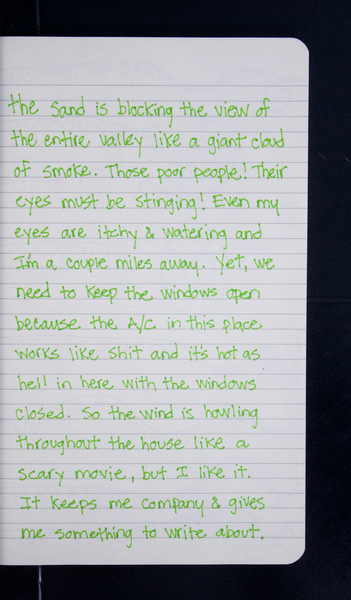 the sand is blocking the view of
the entire valley like a giant cloud
of smoke. Those poor people! Their
eyes must be stinging! Even my
eyes are itchy & watering and
I'm a couple miles away. Yet, we
need to keep the windows open
because the A/C in this place
works like shit and it's hot as
hell in here with the windows
closed. So the wind is howling
throughout the house like a
scary movie, but I like it.
It keeps me company & gives
me something to write about.